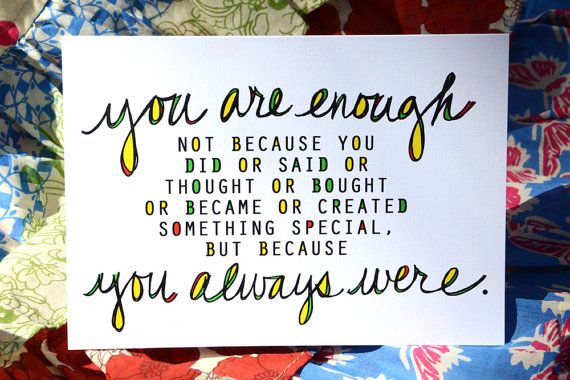 you are enough
NOT BECAUSE YOU
DID OR SAID OR
THOUGHT OR BOUGHT
OR BECAME OR CREATED
SOMETHING SPECIAL,
BUT BECAUSE
you always were.